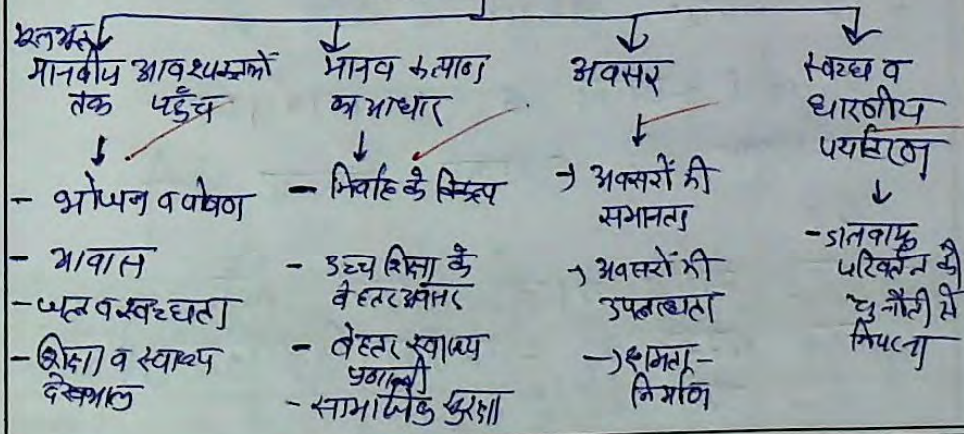 मूलभूत
मानवीय आवश्यकताओं
तक पहुँच
↓
- भोजन व पोषण
- आवास
- जल व स्वच्छता
- शिक्षा व स्वास्थ्य
देखभाल
मानव कल्याण
का आधार
↓
- निर्वाह के विकल्प
- उच्च शिक्षा के
बेहतर अवसर
- बेहतर स्वास्थ्य
प्रणाली
- सामाजिक सुरक्षा
अवसर
↓
→ अवसरों की
समानता
→ अवसरों की
उपलब्धता
→ क्षमता-
निर्माण
स्वच्छ व
धारणीय
पर्यावरण
↓
- जलवायु
परिवर्तन की
चुनौती से
निपटना